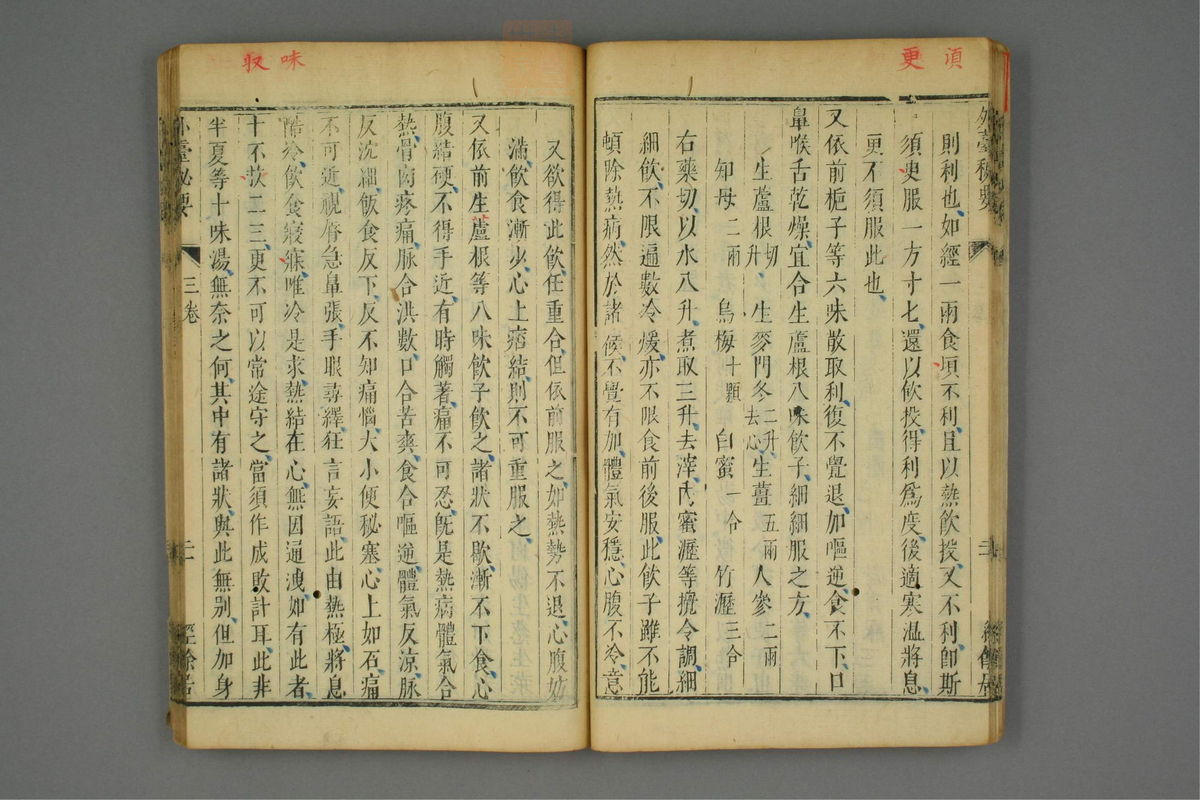 須
更
外臺秘要
則利也如經一兩食頃不利且以熱飲投又不利卽斯
須叓服一方寸七還以飲投得利爲度後適寒溫將息
更不須服此也
又依前梔子等六味散取利復不覺退加嘔逆食不下口
鼻喉舌乾燥宜合生蘆根八味飲子細細服之方
生蘆根切升 生麥門冬二升去心 生薑五兩 人參二兩
知母二兩 烏梅十顆 白蜜一合 竹瀝三合
右藥切以水八升煮取三升去滓内蜜瀝等攪令調細
細飲不限遍數冷煖亦不限食前後服此飲子雖不能
頓除熱病然於諸候不覺有加體氣安穩心腹不冷意
味
収
又欲得此飲任重合但依前服之如熱勢不退心腹妨
滿飲食漸少心上痞結則不可重服之
又依前生蘆根等八味飲子飲之諸狀不歇漸不下食心
腹結硬不得手近有時觸著痛不可忍旣是熱病體氣合
熱骨肉疼痛脉合洪數口合苦爽食合嘔逆體氣反涼脉
反沈細飯食反下反不知痛惱大小便秘塞心上如石痛
不可近視脊急鼻張手眼尋繹狂言妄語此由熱極將息
酷冷飲食寢寐唯冷是求熱結在心無因通洩如有此者
十不救二三更不可以常途守之當須作成敗計耳此非
半夏等十味湯無奈之何其中有諸狀與此無别但加身
外臺秘要
三卷
二
經餘居